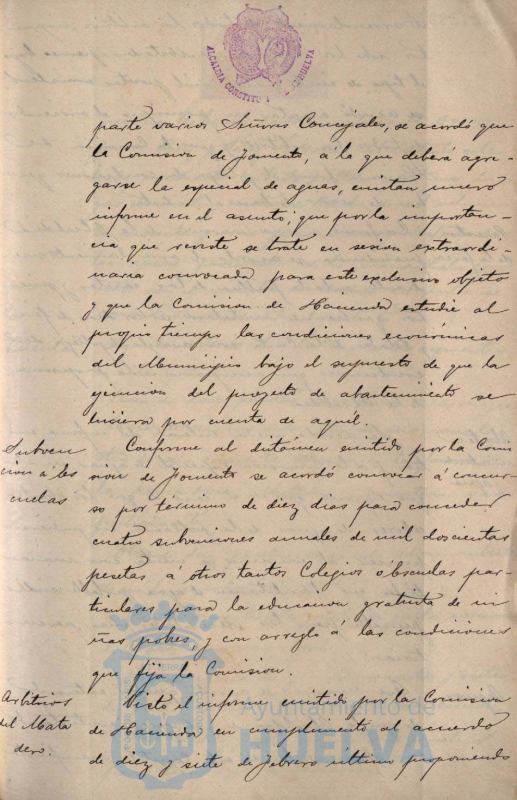 ALCALDIA CONSTITU HUELVA
parte varios Señores Concejales, se acordó que
la Comision de Fomento, á la que deberá agre-
garse la especial de aguas, emitan nuevo
informe en el asunto; que por la importan-
cia que reviste se trate en sesion extraordi-
naria convocada para este exclusivo objeto
y que la Comision de Hacienda estudie al
propio tiempo las condiciones económicas
del Municipio bajo el supuesto de que la
ejecucion del proyecto de abastecimiento se
hiciera por cuenta de aquél.
Subven
cion á es
cuelas
Conforme al dictámen emitido por la Comi
sion de Fomento se acordó convocar á concur-
so por término de diez dias para conceder
cuatro subvenciones anuales de mil doscientas
pesetas á otros tantos Colegios ó Escuelas par-
ticulares para la educacion gratuita de ni
ñas pobres, y con arreglo á las condiciones
que fija la Comision.
Arbitrios
del Mata
dero.
Visto el informe emitido por la Comision
de Hacienda en cumplimento al acuerdo
de diez y siete de Febrero ultimo proponiendo
Ayuntamiento de
HUELVA